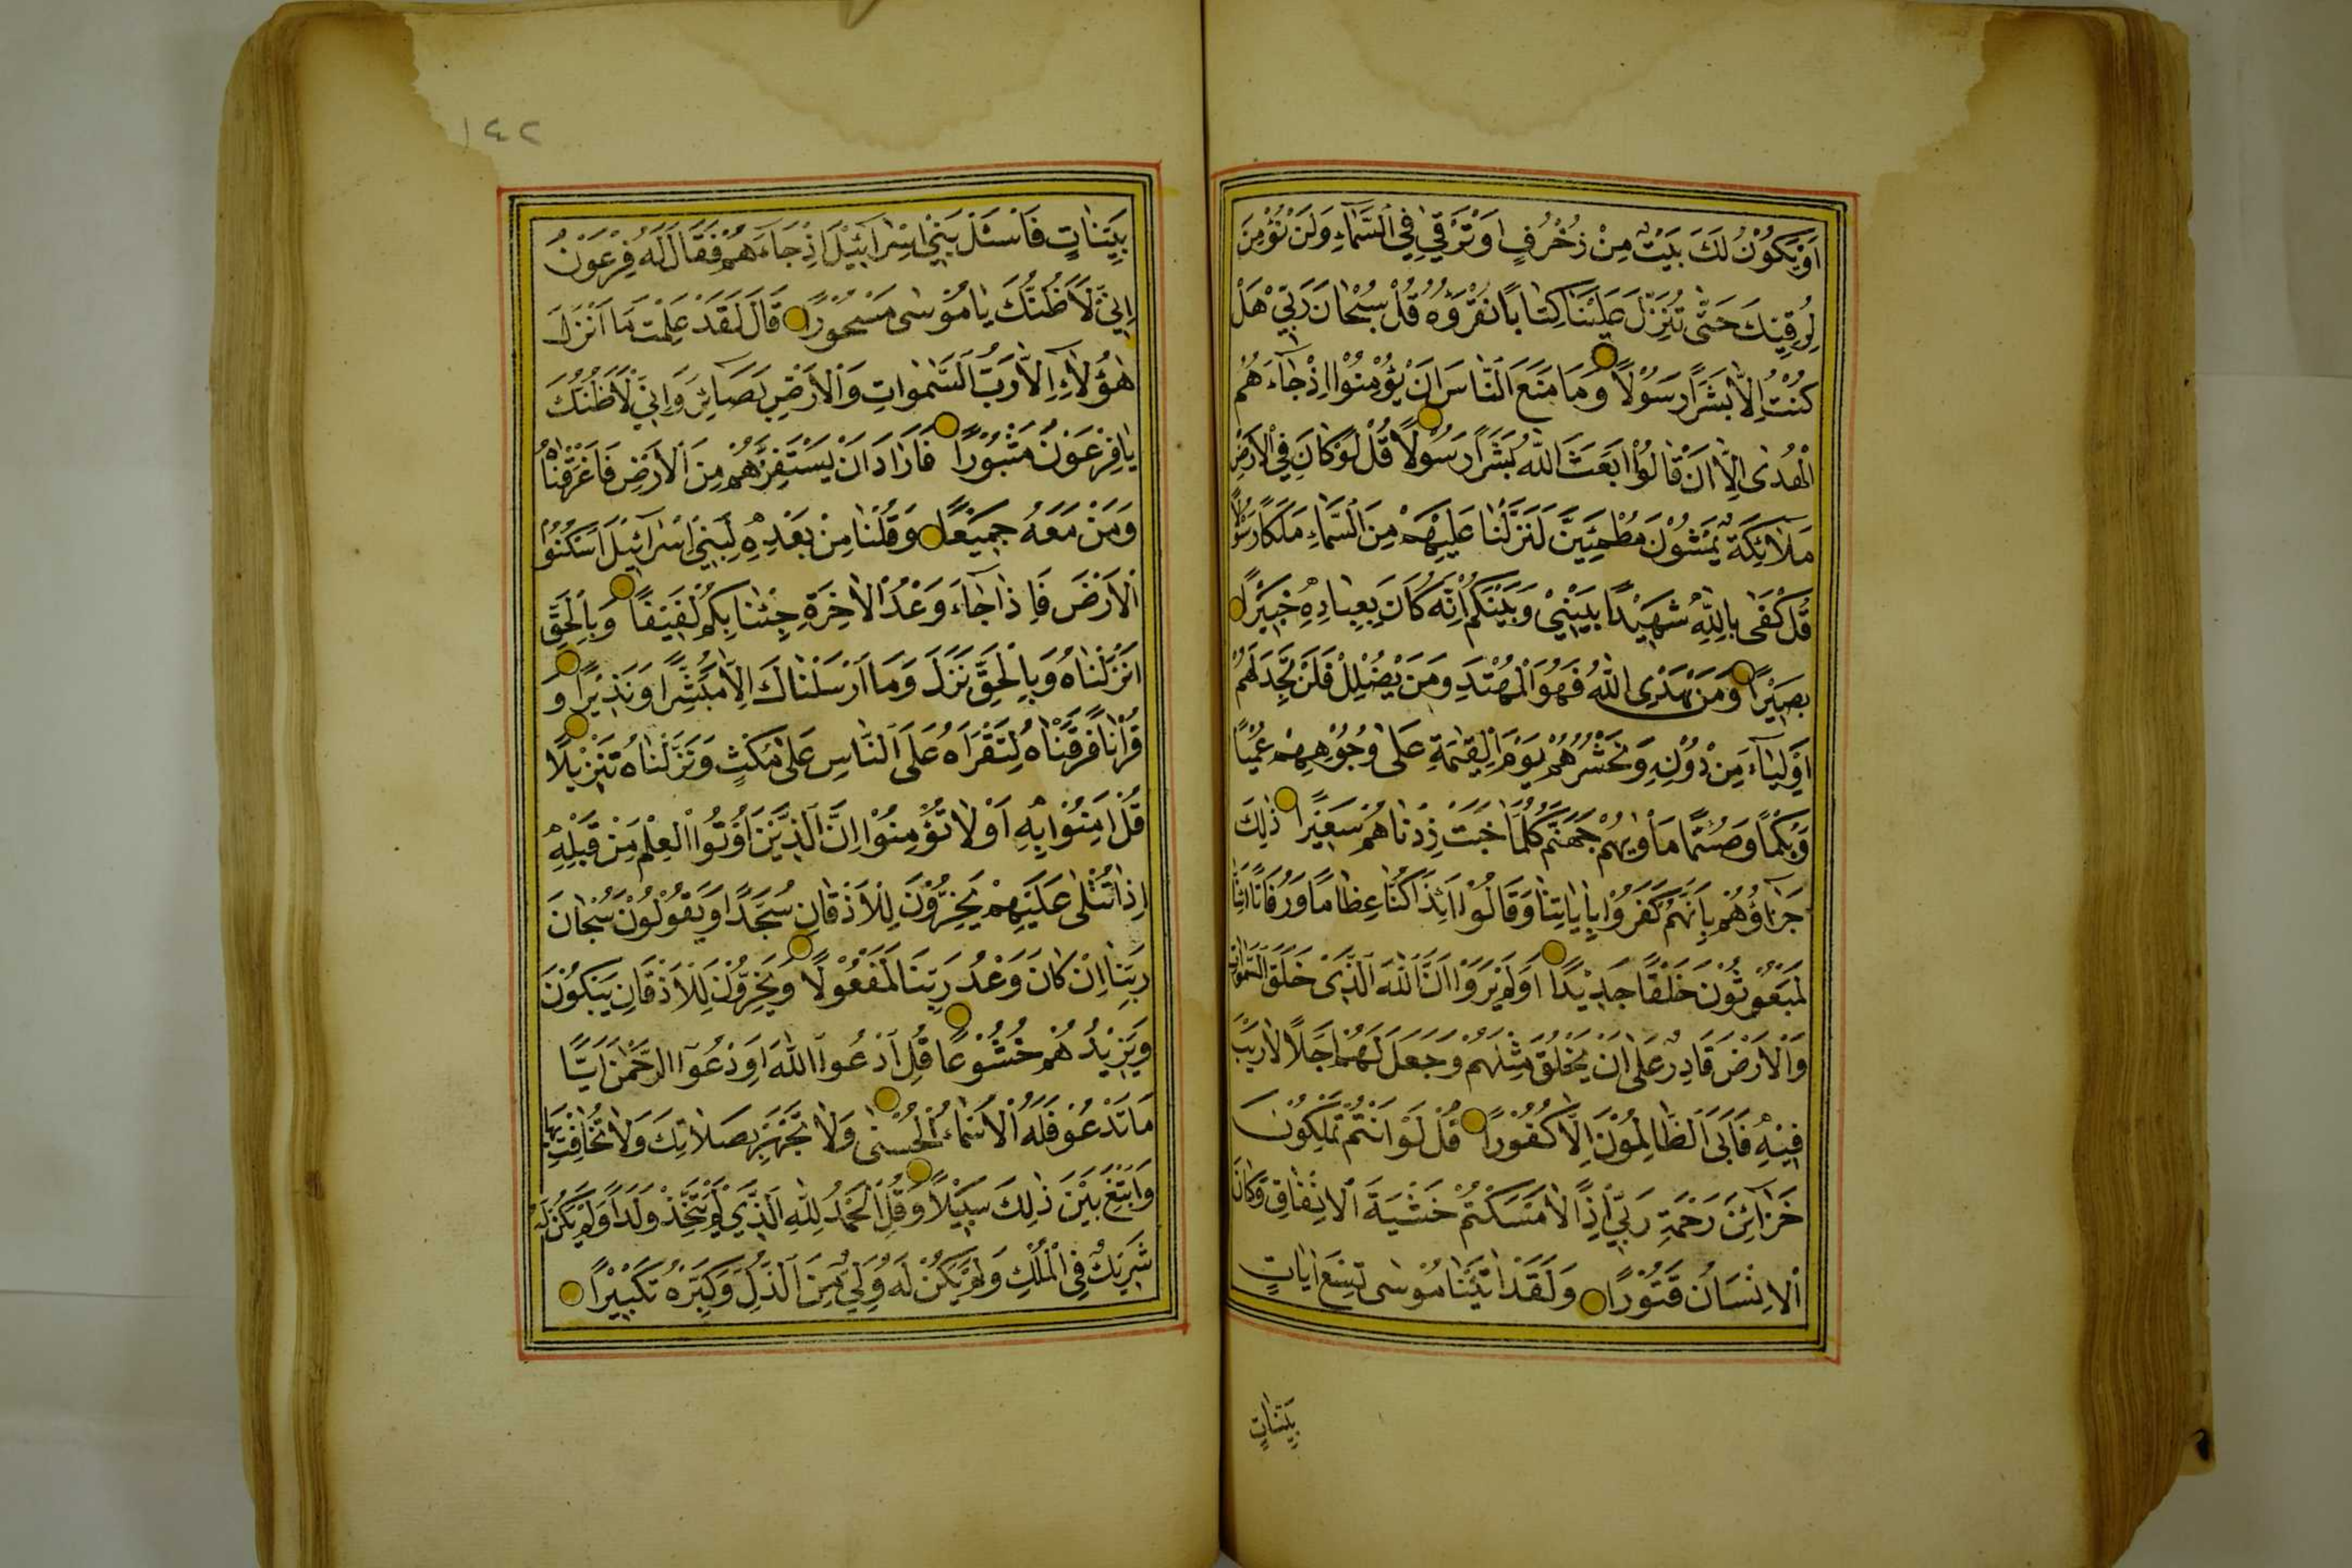 اَوْ يَكُوْنَ لَكَ بَيْتٌ مِنْ زُخْرُفٍ اَوْ تَرْقٰى فِي السَّمَآءِ وَلَنْ نُؤْمِنَ
لِرُقِيِّكَ حَتّٰى تُنَزِّلَ عَلَيْنَا كِتَابًا نَقْرَؤُهُ قُلْ سُبْحَانَ رَبِّيْ هَلْ
كُنْتُ اِلَّا بَشَرًا رَسُوْلًا وَمَا مَنَعَ النَّاسَ اَنْ يُؤْمِنُوْا اِذْ جَآءَهُمُ
الْهُدٰى اِلَّا اَنْ قَالُوْا اَبَعَثَ اللّٰهُ بَشَرًا رَسُوْلًا قُلْ لَوْ كَانَ فِي الْاَرْضِ
مَلَائِكَةٌ يَمْشُوْنَ مُطْمَئِنِّيْنَ لَنَزَّلْنَا عَلَيْهِمْ مِنَ السَّمَآءِ مَلَكًا رَسُوْلًا
قُلْ كَفٰى بِاللّٰهِ شَهِيْدًا بَيْنِيْ وَبَيْنَكُمْ اِنَّهُ كَانَ بِعِبَادِهٖ خَبِيْرًا
بَصِيْرًا وَمَنْ يَهْدِى اللّٰهُ فَهُوَ الْمُهْتَدِ وَمَنْ يُضْلِلْ فَلَنْ تَجِدَ لَهُمْ
اَوْلِيَآءَ مِنْ دُوْنِهِ وَنَحْشُرُهُمْ يَوْمَ الْقِيٰمَةِ عَلٰى وُجُوْهِهِمْ عُمْيًا
وَبُكْمًا وَصُمًّا مَأْوٰيهُمْ جَهَنَّمُ كُلَّمَا خَبَتْ زِدْنَاهُمْ سَعِيْرًا ذٰلِكَ
جَزَآؤُهُمْ بِاَنَّهُمْ كَفَرُوْا بِاٰيَاتِنَا وَقَالُوْا اَئِذَا كُنَّا عِظَامًا وَرُفَاتًا اَئِنَّا
لَمَبْعُوْثُوْنَ خَلْقًا جَدِيْدًا اَوَلَمْ يَرَوْا اَنَّ اللّٰهَ الَّذِيْ خَلَقَ السَّمٰوَاتِ
وَالْاَرْضَ قَادِرٌ عَلٰى اَنْ يَخْلُقَ مِثْلَهُمْ وَجَعَلَ لَهُمْ اَجَلًا لَا رَيْبَ
فِيْهِ فَاَبَى الظَّالِمُوْنَ اِلَّا كُفُوْرًا قُلْ لَوْ اَنْتُمْ تَمْلِكُوْنَ
خَزَآئِنَ رَحْمَةِ رَبِّيْ اِذًا لَاَمْسَكْتُمْ خَشْيَةَ الْاِنْفَاقِ وَكَانَ
الْاِنْسَانُ قَتُوْرًا وَلَقَدْ اٰتَيْنَا مُوْسٰى تِسْعَ اٰيَاتٍ
بَيِّنَاتٍ
١٤٢
بَيِّنَاتٍ فَاسْئَلْ بَنِيْ اِسْرَآئِيْلَ اِذْ جَآءَهُمْ فَقَالَ لَهُ فِرْعَوْنُ
اِنِّيْ لَاَظُنُّكَ يَا مُوْسٰى مَسْحُوْرًا قَالَ لَقَدْ عَلِمْتَ مَا اَنْزَلَ
هٰؤُلَآءِ اِلَّا رَبُّ السَّمٰوَاتِ وَالْاَرْضِ بَصَآئِرَ وَاِنِّيْ لَاَظُنُّكَ
يَا فِرْعَوْنُ مَثْبُوْرًا فَاَرَادَ اَنْ يَسْتَفِزَّهُمْ مِنَ الْاَرْضِ فَاَغْرَقْنَاهُ
وَمَنْ مَعَهُ جَمِيْعًا وَقُلْنَا مِنْ بَعْدِهٖ لِبَنِيْ اِسْرَآئِيْلَ اسْكُنُوْا
الْاَرْضَ فَاِذَا جَآءَ وَعْدُ الْاٰخِرَةِ جِئْنَا بِكُمْ لَفِيْفًا وَبِالْحَقِّ
اَنْزَلْنَاهُ وَبِالْحَقِّ نَزَلَ وَمَا اَرْسَلْنَاكَ اِلَّا مُبَشِّرًا وَنَذِيْرًا وَ
قُرْاٰنًا فَرَقْنَاهُ لِتَقْرَاَهُ عَلَى النَّاسِ عَلٰى مُكْثٍ وَنَزَّلْنَاهُ تَنْزِيْلًا
قُلْ اٰمِنُوْا بِهٖ اَوْ لَا تُؤْمِنُوْا اِنَّ الَّذِيْنَ اُوْتُوا الْعِلْمَ مِنْ قَبْلِهٖ
اِذَا تُتْلٰى عَلَيْهِمْ يَخِرُّوْنَ لِلْاَذْقَانِ سُجَّدًا وَيَقُوْلُوْنَ سُبْحَانَ
رَبِّنَا اِنْ كَانَ وَعْدُ رَبِّنَا لَمَفْعُوْلًا وَيَخِرُّوْنَ لِلْاَذْقَانِ يَبْكُوْنَ
وَيَزِيْدُهُمْ خُشُوْعًا قُلِ ادْعُوا اللّٰهَ اَوِ ادْعُوا الرَّحْمٰنَ اَيًّا
مَا تَدْعُوْ فَلَهُ الْاَسْمَآءُ الْحُسْنٰى وَلَا تَجْهَرْ بِصَلَاتِكَ وَلَا تُخَافِتْ بِهَا
وَابْتَغِ بَيْنَ ذٰلِكَ سَبِيْلًا وَقُلِ الْحَمْدُ لِلّٰهِ الَّذِيْ لَمْ يَتَّخِذْ وَلَدًا وَلَمْ يَكُنْ لَهُ
شَرِيْكٌ فِي الْمُلْكِ وَلَمْ يَكُنْ لَهُ وَلِيٌّ مِنَ الذُّلِّ وَكَبِّرْهُ تَكْبِيْرًا